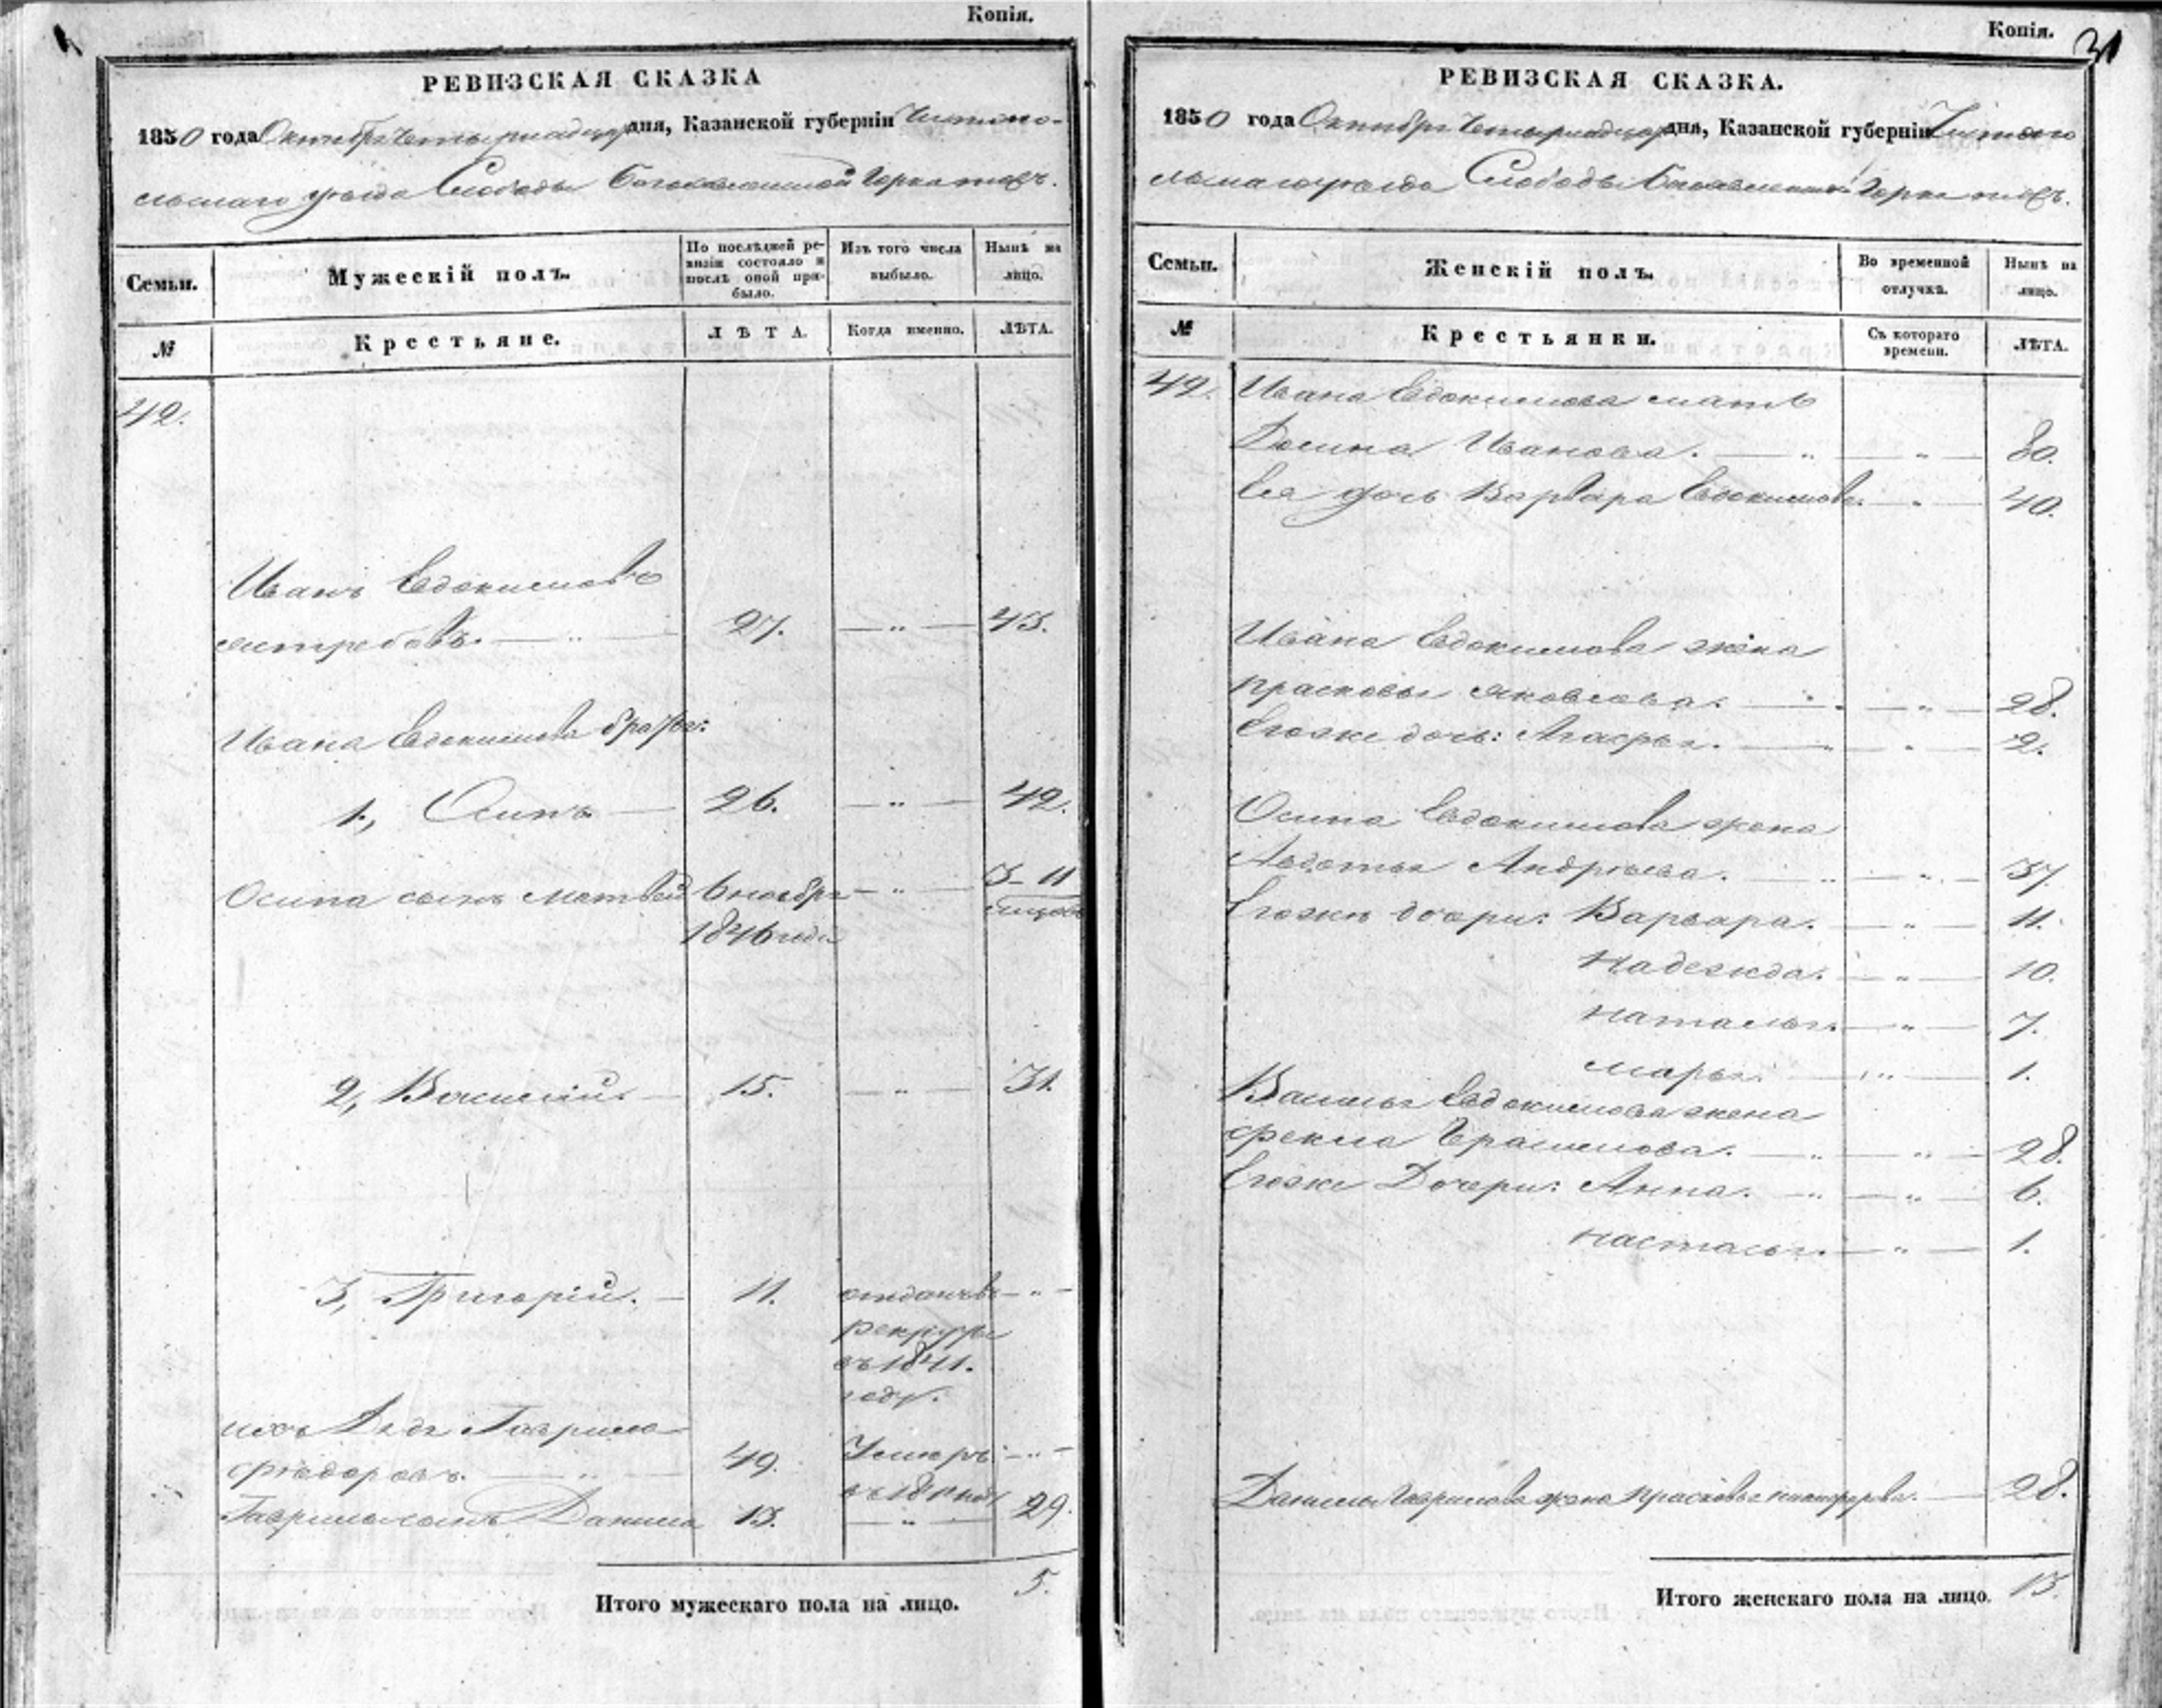 Копія.
РЕВИЗСКАЯ СКАЗКА
1850 года Октября Четырнадцат дня, Казанской губерніи Чистопо-
льскаго уѣзда Слободы Богоявленской
Семьи.
Мужескій полъ.
По послѣдней ре-
визіи состояло и
послѣ оной при-
было.
Изъ того числа
выбыло.
Нынѣ на
лицо.
№
Крестьяне.
ЛѢТА.
Когда именно.
ЛѢТА.
42.
Иванъ Евдокимовъ
ястребовъ. — „ — 27. — „ — 43.
Ивана Евдокимова братья:
1, Осипъ — 26. — „ — 42.
Осипа сынъ Матвей 6 ноября — „ — 3-11
1846 года
2, Василій. — 15. — „ — 31.
3, Григорій. — 11. отданъ въ — „ —
рекруты
въ 1841.
году.
ихъ Дядя Гаврила
Фѣдоровъ. — „ — 49. Умеръ — „ —
Гаврилы сынъ Данила 13. — „ — 29.
Итого мужескаго пола на лицо. 5.
Копія.
31
РЕВИЗСКАЯ СКАЗКА.
1850 года Октября Четырнадцат дня, Казанской губерніи Чистопо
льскаго уѣзда Слободы Богоявленской
Семьи.
Женскій полъ.
Во временной
отлучкѣ.
Нынѣ на
лицо.
№
Крестьянки.
Съ котораго
времени.
ЛѢТА.
42. Ивана Евдокимова мать
Иванова. — „ — „ — 80.
Ея дочь Варвара Евдокимова. — „ — 40.
Ивана Евдокимова жена
Прасковья Яковлева. — „ — „ — 28.
Егоже дочь: Агафья. — „ — „ — 2.
Осипа Евдокимова жена
Авдотья Андрѣева. — „ — „ — 37.
Егоже дочери: Варвара. — „ — 11.
Надежда. — „ — 10.
Наталья. — „ — 7.
Марья. — „ — 1.
Василья Евдокимова жена
Фекла Ерашмова. — „ — „ — 28.
Егоже Дочери: Анна. — „ — „ — 6.
Настасья. — „ — 1.
Данилы Гаврилова жена Прасковья Никифорова. — 28.
Итого женскаго пола на лицо. 13.